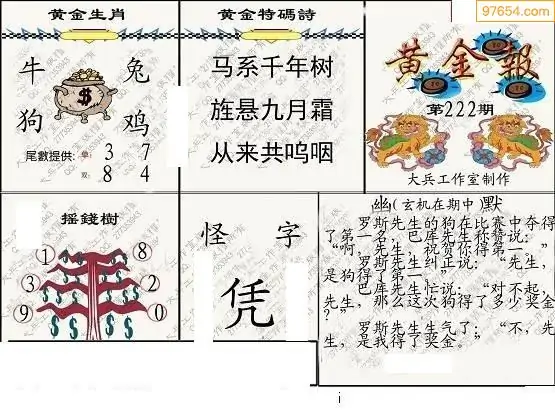 97654.com
黄金生肖
牛 兔
狗 鸡
$
尾數提供: 單: 3 7
双: 8 4
黄金特碼詩
马系千年树
旌悬九月霜
从来共呜咽
黄金報
第222期
大兵工作室制作
摇錢樹
1 8
3 2
9 0
$ $ $ $
怪 字
凭
幽(玄机在期中)默
罗斯先生的狗在比赛中夺得
了第一名，巴库先生称赞说：
“啊，先生，祝贺你得第一，”
罗斯先生纠正说：“先生，
是狗得了第一。”
巴库先生忙说：“对不起，
先生，那么这次狗得了多少奖金
？”
罗斯先生生气了：“不，先
生，是我得了奖金。”
i